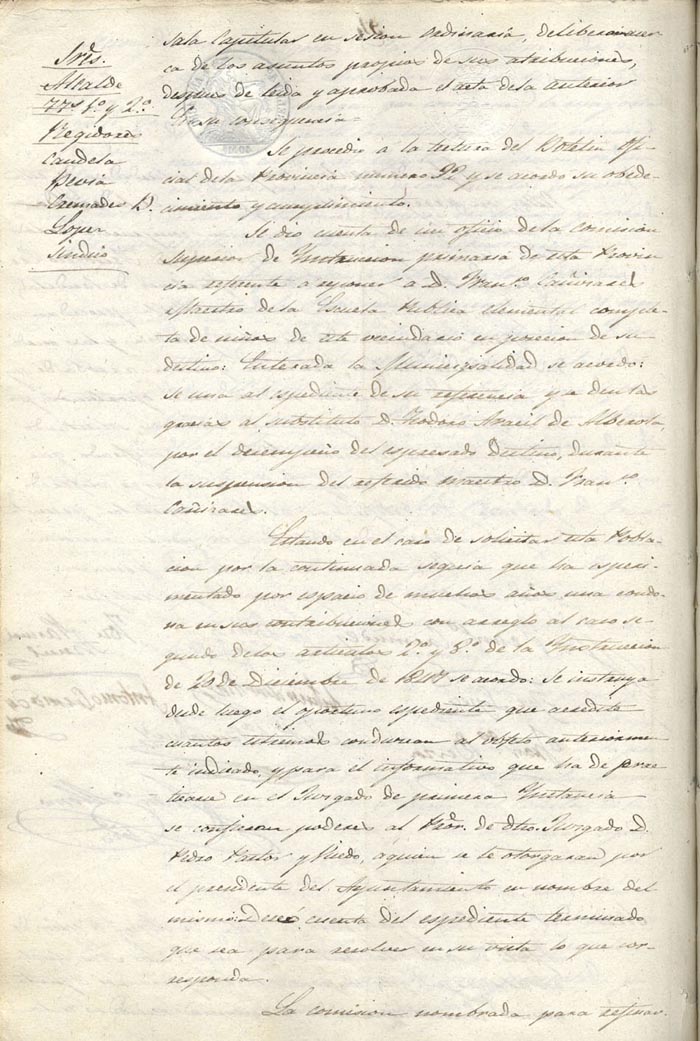 Sres.
Alcalde
Ttes 1º y 2º
Regidores
Candela
Hevia
Cremades D.
Lopez
Sindico
Sala Capitular en sesion ordinaria, deliberar acer
ca de los asuntos propios de sus atribuciones,
despues de leida y aprobada el acta de la anterior
En su consequencia
Se procedio a la lectura del Boletin Ofi-
cial de la Provincia numero 92 y se acordo su obede-
cimiento y cumplimiento.
Se dio cuenta de un oficio de la comision
Superior de Instruccion primaria de esta Provin
cia referente a reponer a D. Franco. Cañizares
Maestro de la Escuela Publica elemental comple-
ta de niños de este vecindario en posecion de su
destino: Enterada la Municipalidad se acordo:
Se una al espediente de su referencia y se den las
gracias al substituto D. Teodoro Aracil de Alberola,
por el desempeño del espresado Destino, durante
la suspension del referido maestro D. Franco.
Cañizares.
Estando en el caso de solicitar esta Pobla-
cion por la continuada sequia que ha esperi-
mentado por espacio de muchos años una condo-
na en sus contribuciones con arreglo al caso se-
gundo de los articulos 2º y 6º de la Instruccion
de 20 de Diciembre de 1847 se acordo: Se instruya
desde luego el oportuno espediente que acredite
cuantos estremos conduzcan al objeto anteriormen
te indicado, y para el informativo que ha de prac
ticarse en el Juzgado de primera Instancia
se confieran poderes al Pror. de dho. Juzgado D.
Pedro Pastor y Puedo, á quien se le otorgaran por
el presidente del Ayuntamiento en nombre del
mismo: Dese cuenta del espediente terminado
que sea para resolver en su vista lo que cor-
responda.
La comision nombrada para